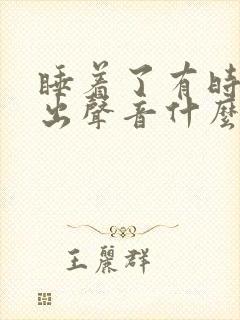 睡着了有時
出聲音什麼
王麗群